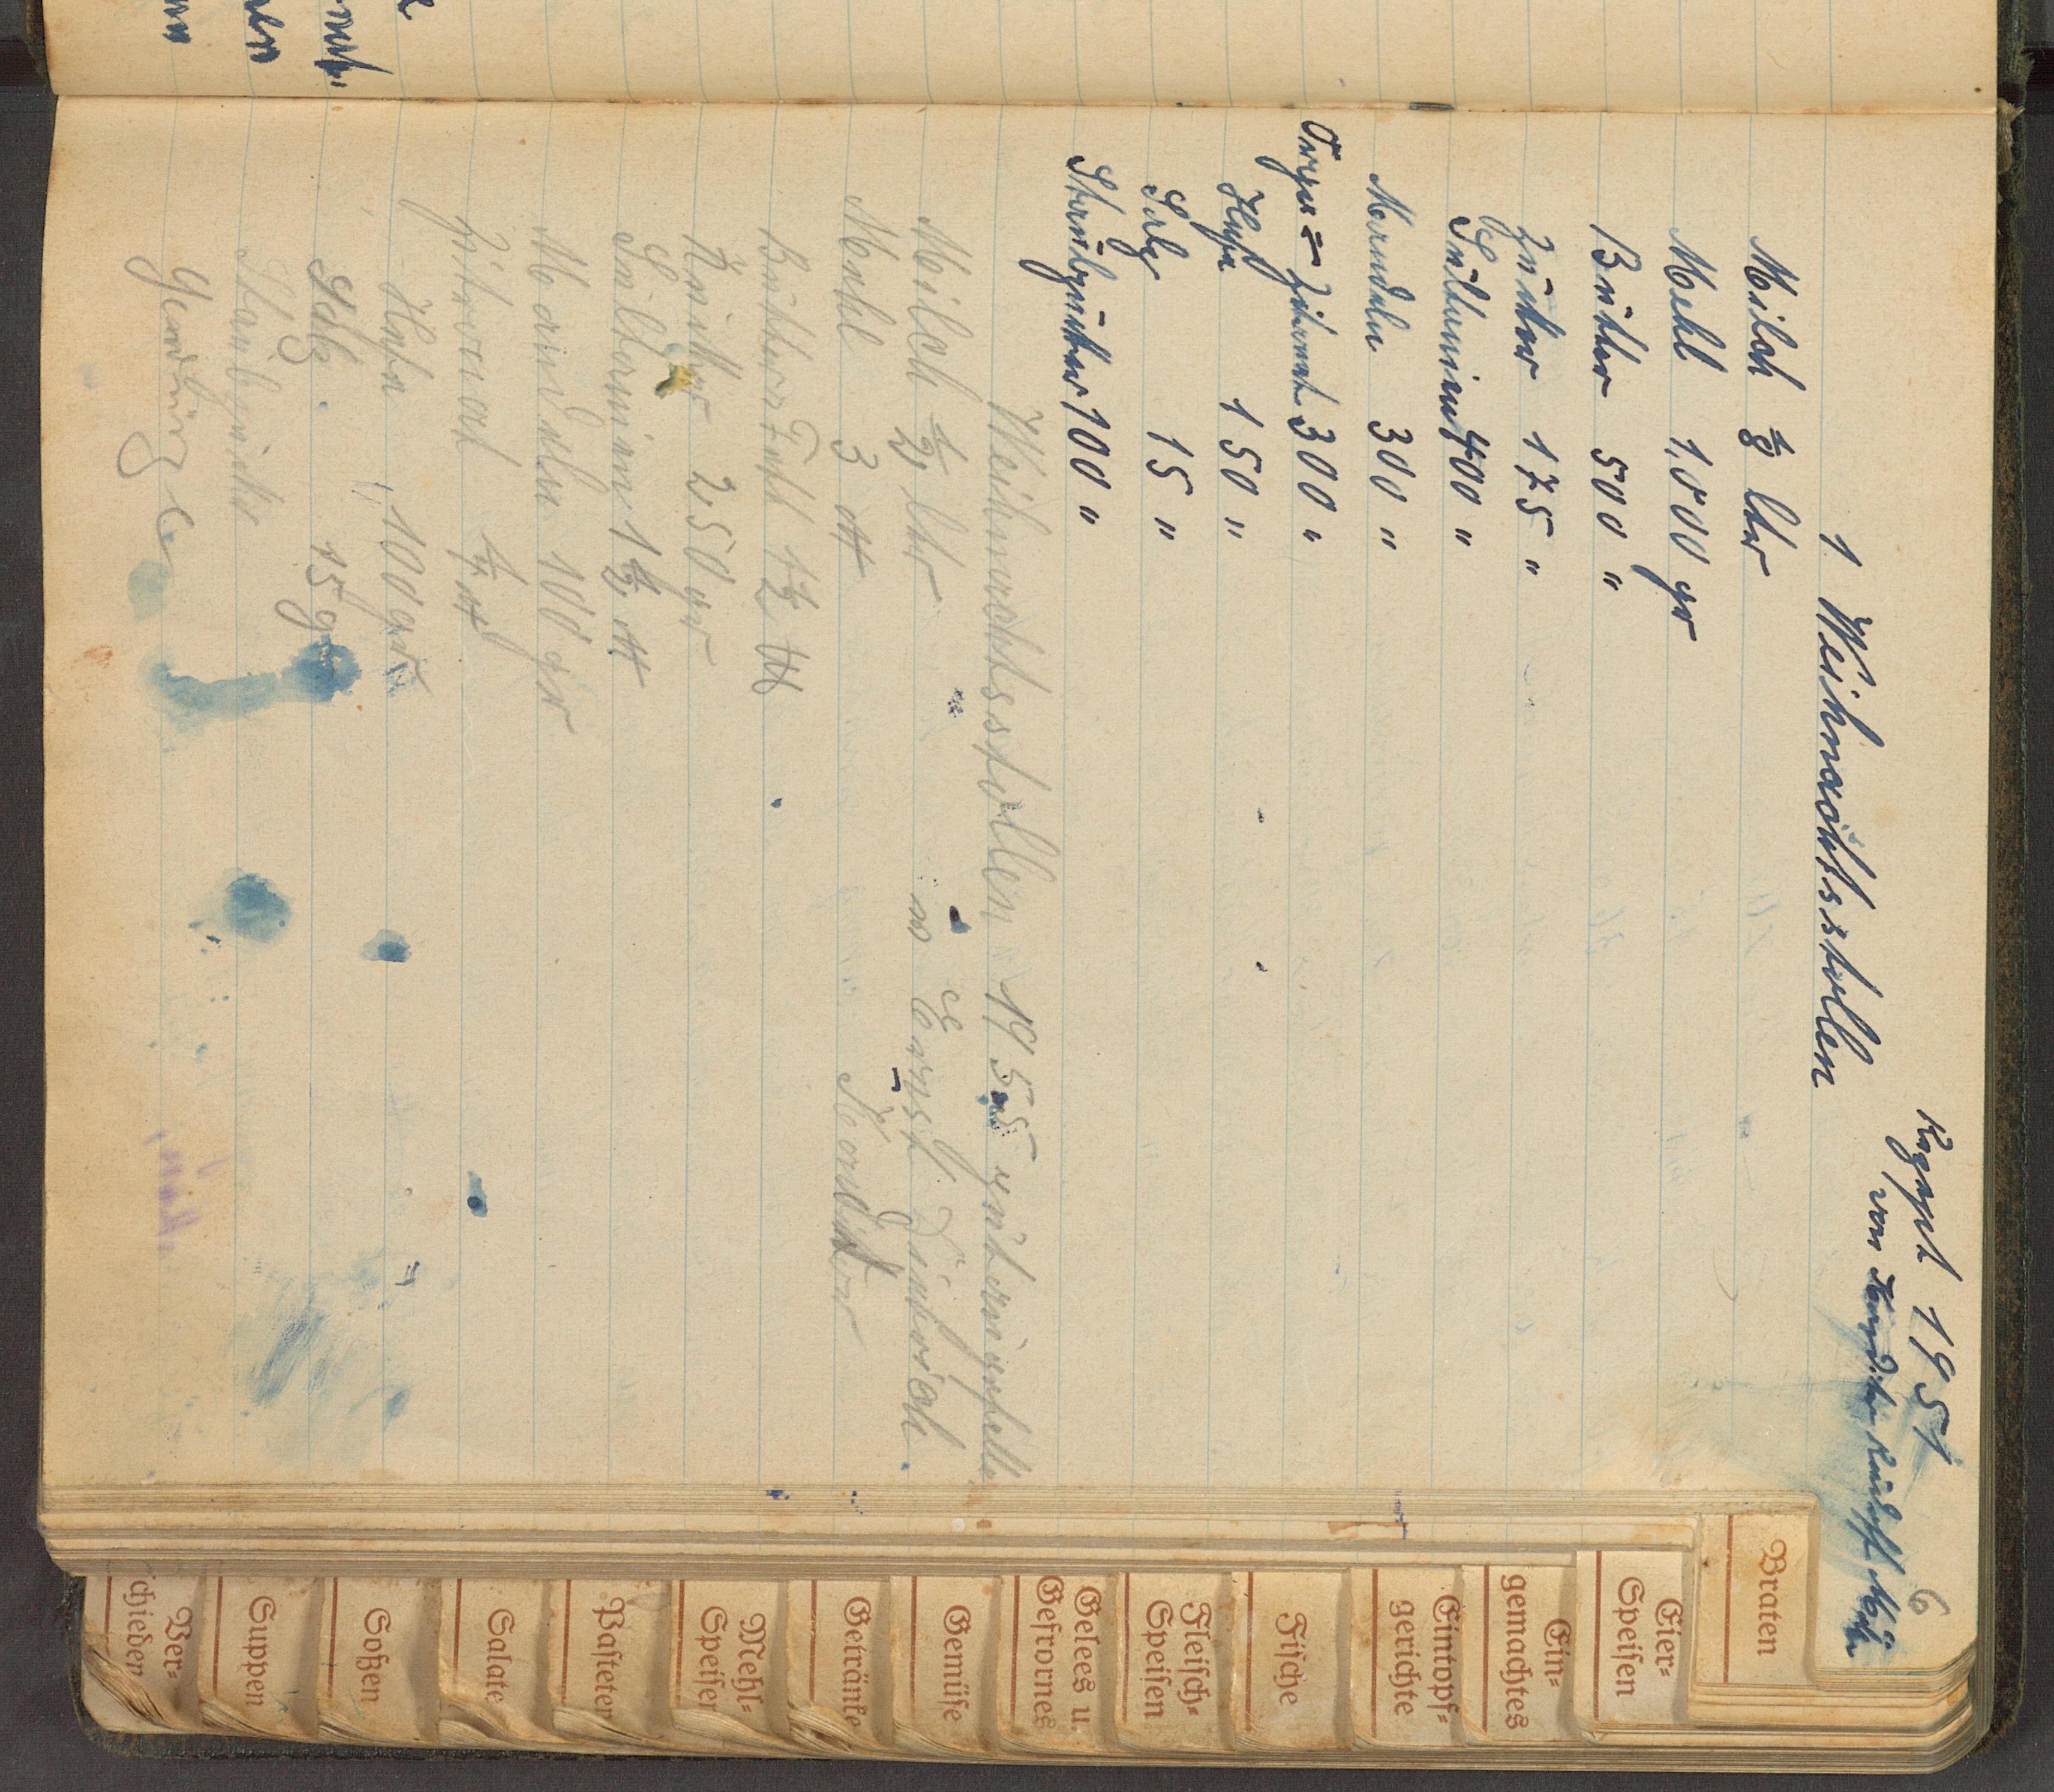 6
Rezept 1951
von Konditor Rudolf
1 Weihnachtsstollen
Milch 1/8 ltr
Mehl 1,000 gr
Butter 500 "
Zucker 175 "
Sultaninen 400 "
Mandeln 300 "
Zitronat 300 "
Hefe 150 "
Salz 15 "
Staubzucker 100 "
Weihnachtsstollen 1955
v Ernst Dietrich
Konditor
Milch 1/2 ltr
Mehl 3 ℔
Butter 1 1/2 ℔
Zucker 250 gr
Sultaninen 1 1/2 ℔
Mandeln 100 gr
Zitronat 1/4 ℔
Hefe 100 gr
Salz 15 gr
Staubzucker
Gewürze
Braten
Eier=
Speisen
Ein=
gemachtes
Eintopf=
gerichte
Fische
Fleisch=
Speisen
Gelees u.
Gefrornes
Gemüse
Getränke
Mehl=
Speisen
Pasteten
Salate
Soßen
Suppen
Ver=
schieden